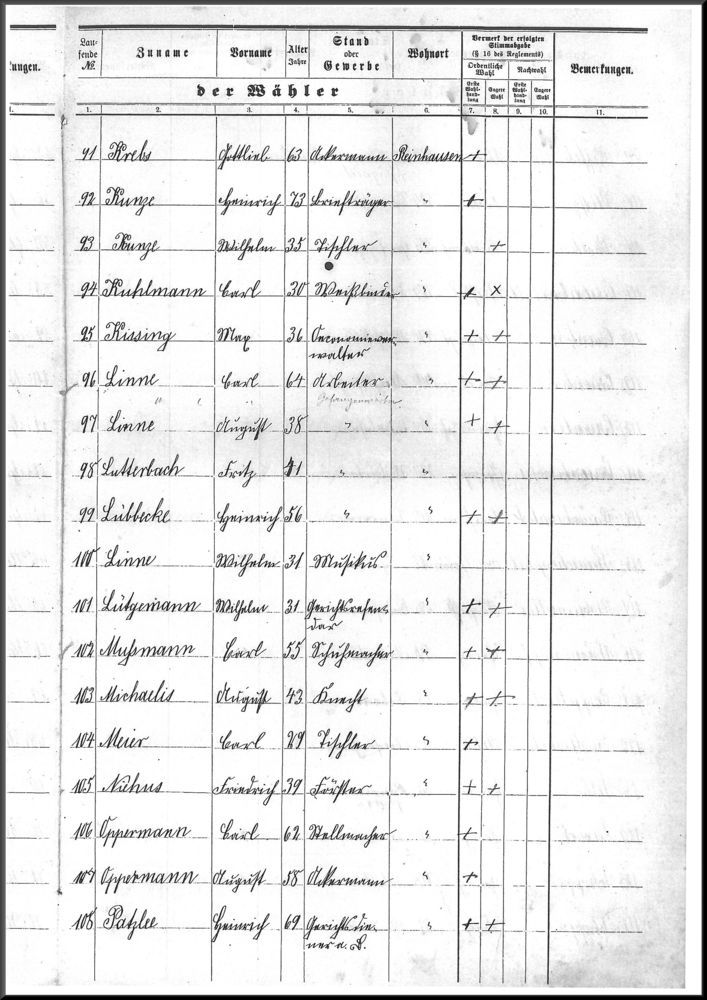 kungen.
Lau-
fende
№.
Zuname
Vorname
Alter
Jahre
Stand
oder
Gewerbe
Wohnort
Vermerk der erfolgten
Stimmabgabe
(§ 16 des Reglements)
Ordentliche
Wahl
Nachwahl
Bemerkungen.
der Wähler
Erste
Wahl-
hand-
lung
Engere
Wahl
Erste
Wahl-
hand-
lung
Engere
Wahl
1. 2. 3. 4. 5. 6. 7. 8. 9. 10. 11.
91 Krebs Gottlieb 63 Ackermann Reinhausen +
92 Kunze Heinrich 73 Briefträger " +
93 Kunze Wilhelm 35 Tischler " +
94 Kuhlmann Carl 30 Weißbinder " + x
95 Kissing Max 36 Oeconomiever- " + +
walter
96 Linne Carl 64 Arbeiter " + +
97 Linne August 38 " " + +
98 Lutterbach Fritz 41 " "
99 Lübbecke Heinrich 56 " " + +
100 Linne Wilhelm 31 Musikus "
101 Lütgemann Wilhelm 31 Gerichtsrefen- " + +
dar
102 Mußmann Carl 55 Schuhmacher " + +
103 Michaelis August 43 Knecht " + +
104 Meier Carl 29 Tischler " +
105 Niehus Friedrich 39 Förster " + +
106 Oppermann Carl 62 Stellmacher " +
107 Oppermann August 58 Ackermann " +
108 Patzlee Heinrich 69 Gerichtsdie- " + +
ner a. D.